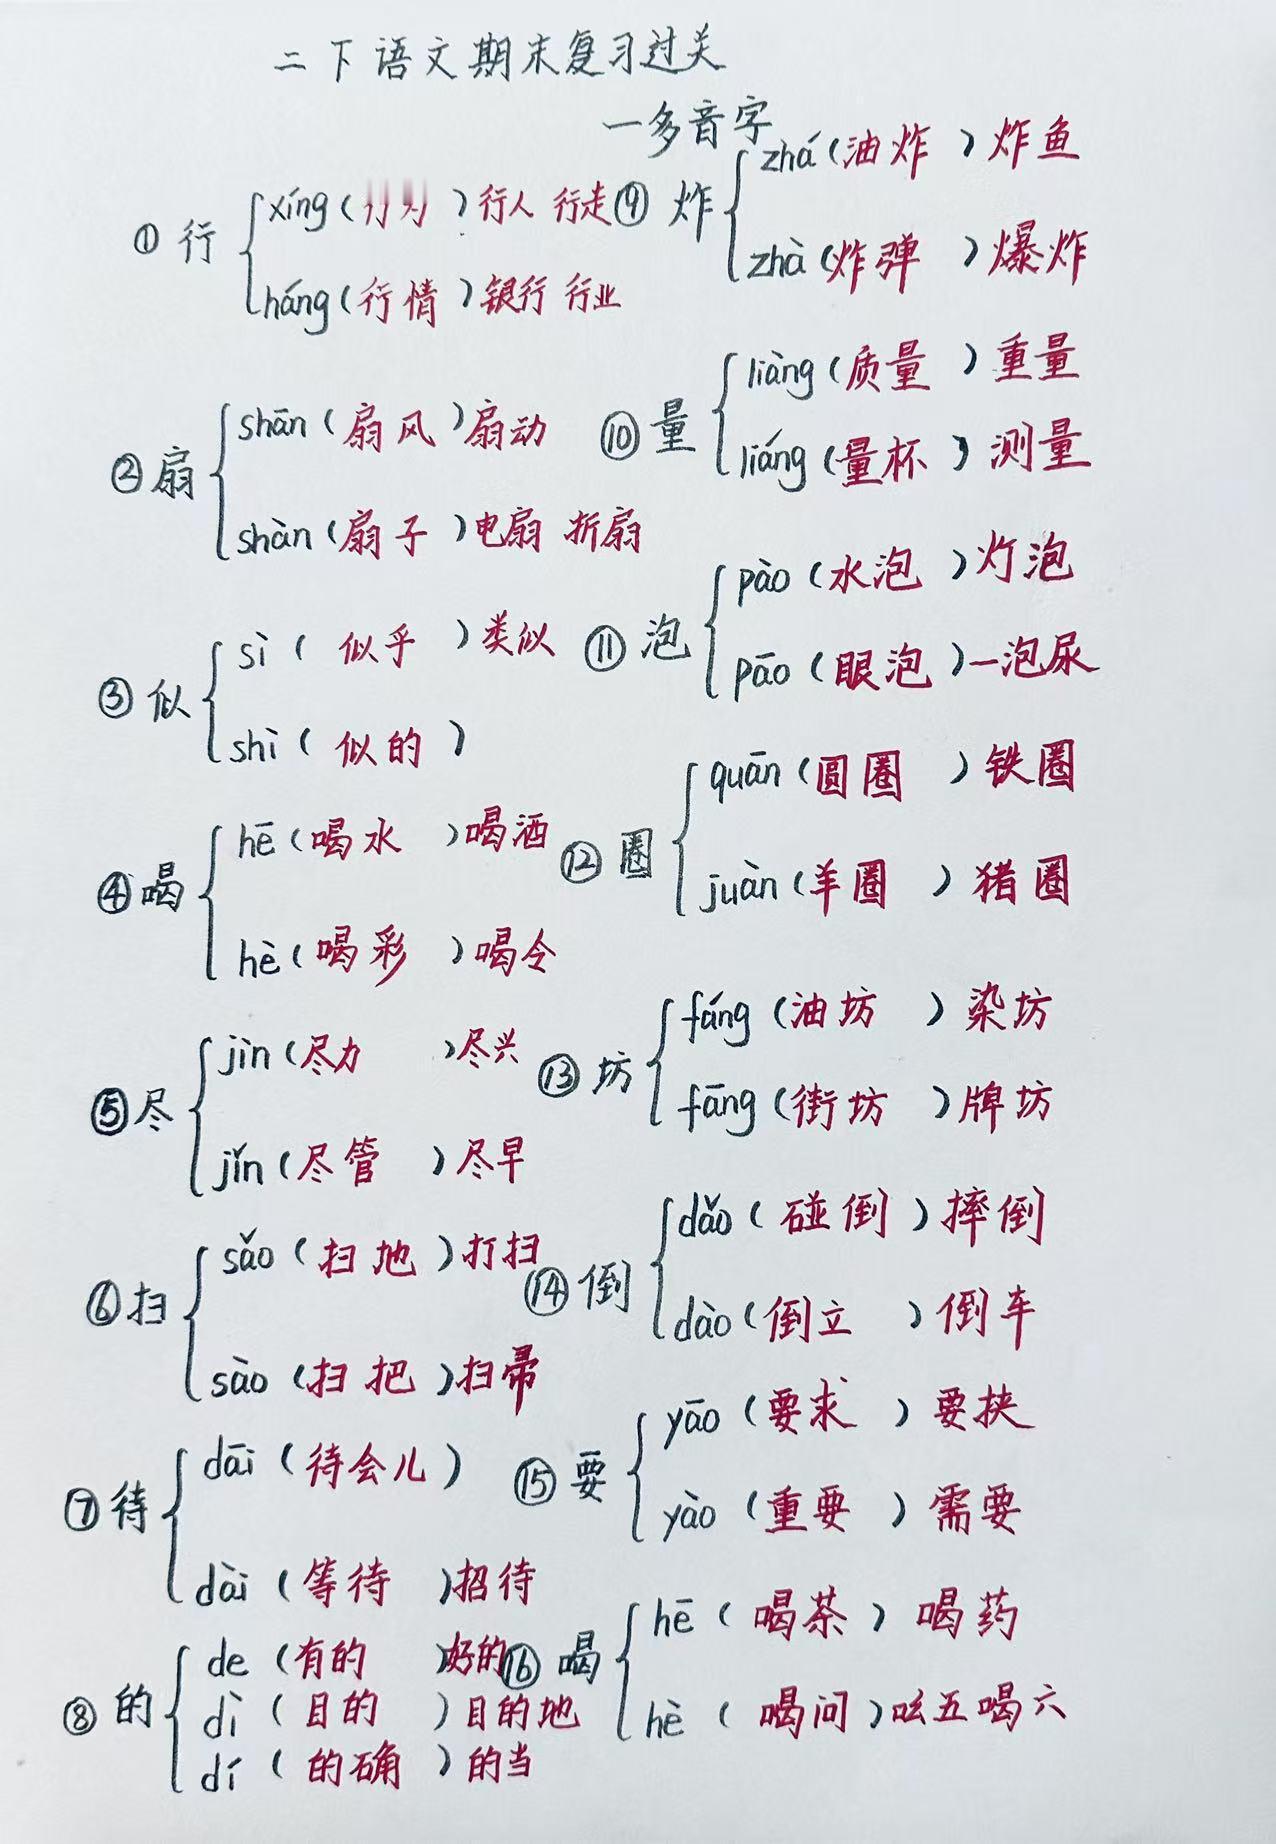 二下语文期末复习过关
一多音字
①行
xíng(行为)行人 行走
háng(行情)银行 行业
②扇
shān(扇风)扇动
shàn(扇子)电扇 折扇
③似
sì(似乎)类似
shì(似的)
④喝
hē(喝水)喝酒
hè(喝彩)喝令
⑤尽
jìn(尽力)尽兴
jǐn(尽管)尽早
⑥扫
sǎo(扫地)打扫
sào(扫把)扫帚
⑦待
dāi(待会儿)
dài(等待)招待
⑧的
de(有的)好的
dì(目的)目的地
dí(的确)的当
⑨炸
zhá(油炸)炸鱼
zhà(炸弹)爆炸
⑩量
liàng(质量)重量
liáng(量杯)测量
⑪泡
pào(水泡)灯泡
pāo(眼泡)一泡尿
⑫圈
quān(圆圈)铁圈
juàn(羊圈)猪圈
⑬坊
fáng(油坊)染坊
fāng(街坊)牌坊
⑭倒
dǎo(碰倒)摔倒
dào(倒立)倒车
⑮要
yāo(要求)要挟
yào(重要)需要
⑯喝
hē(喝茶)喝药
hè(喝问)吆五喝六